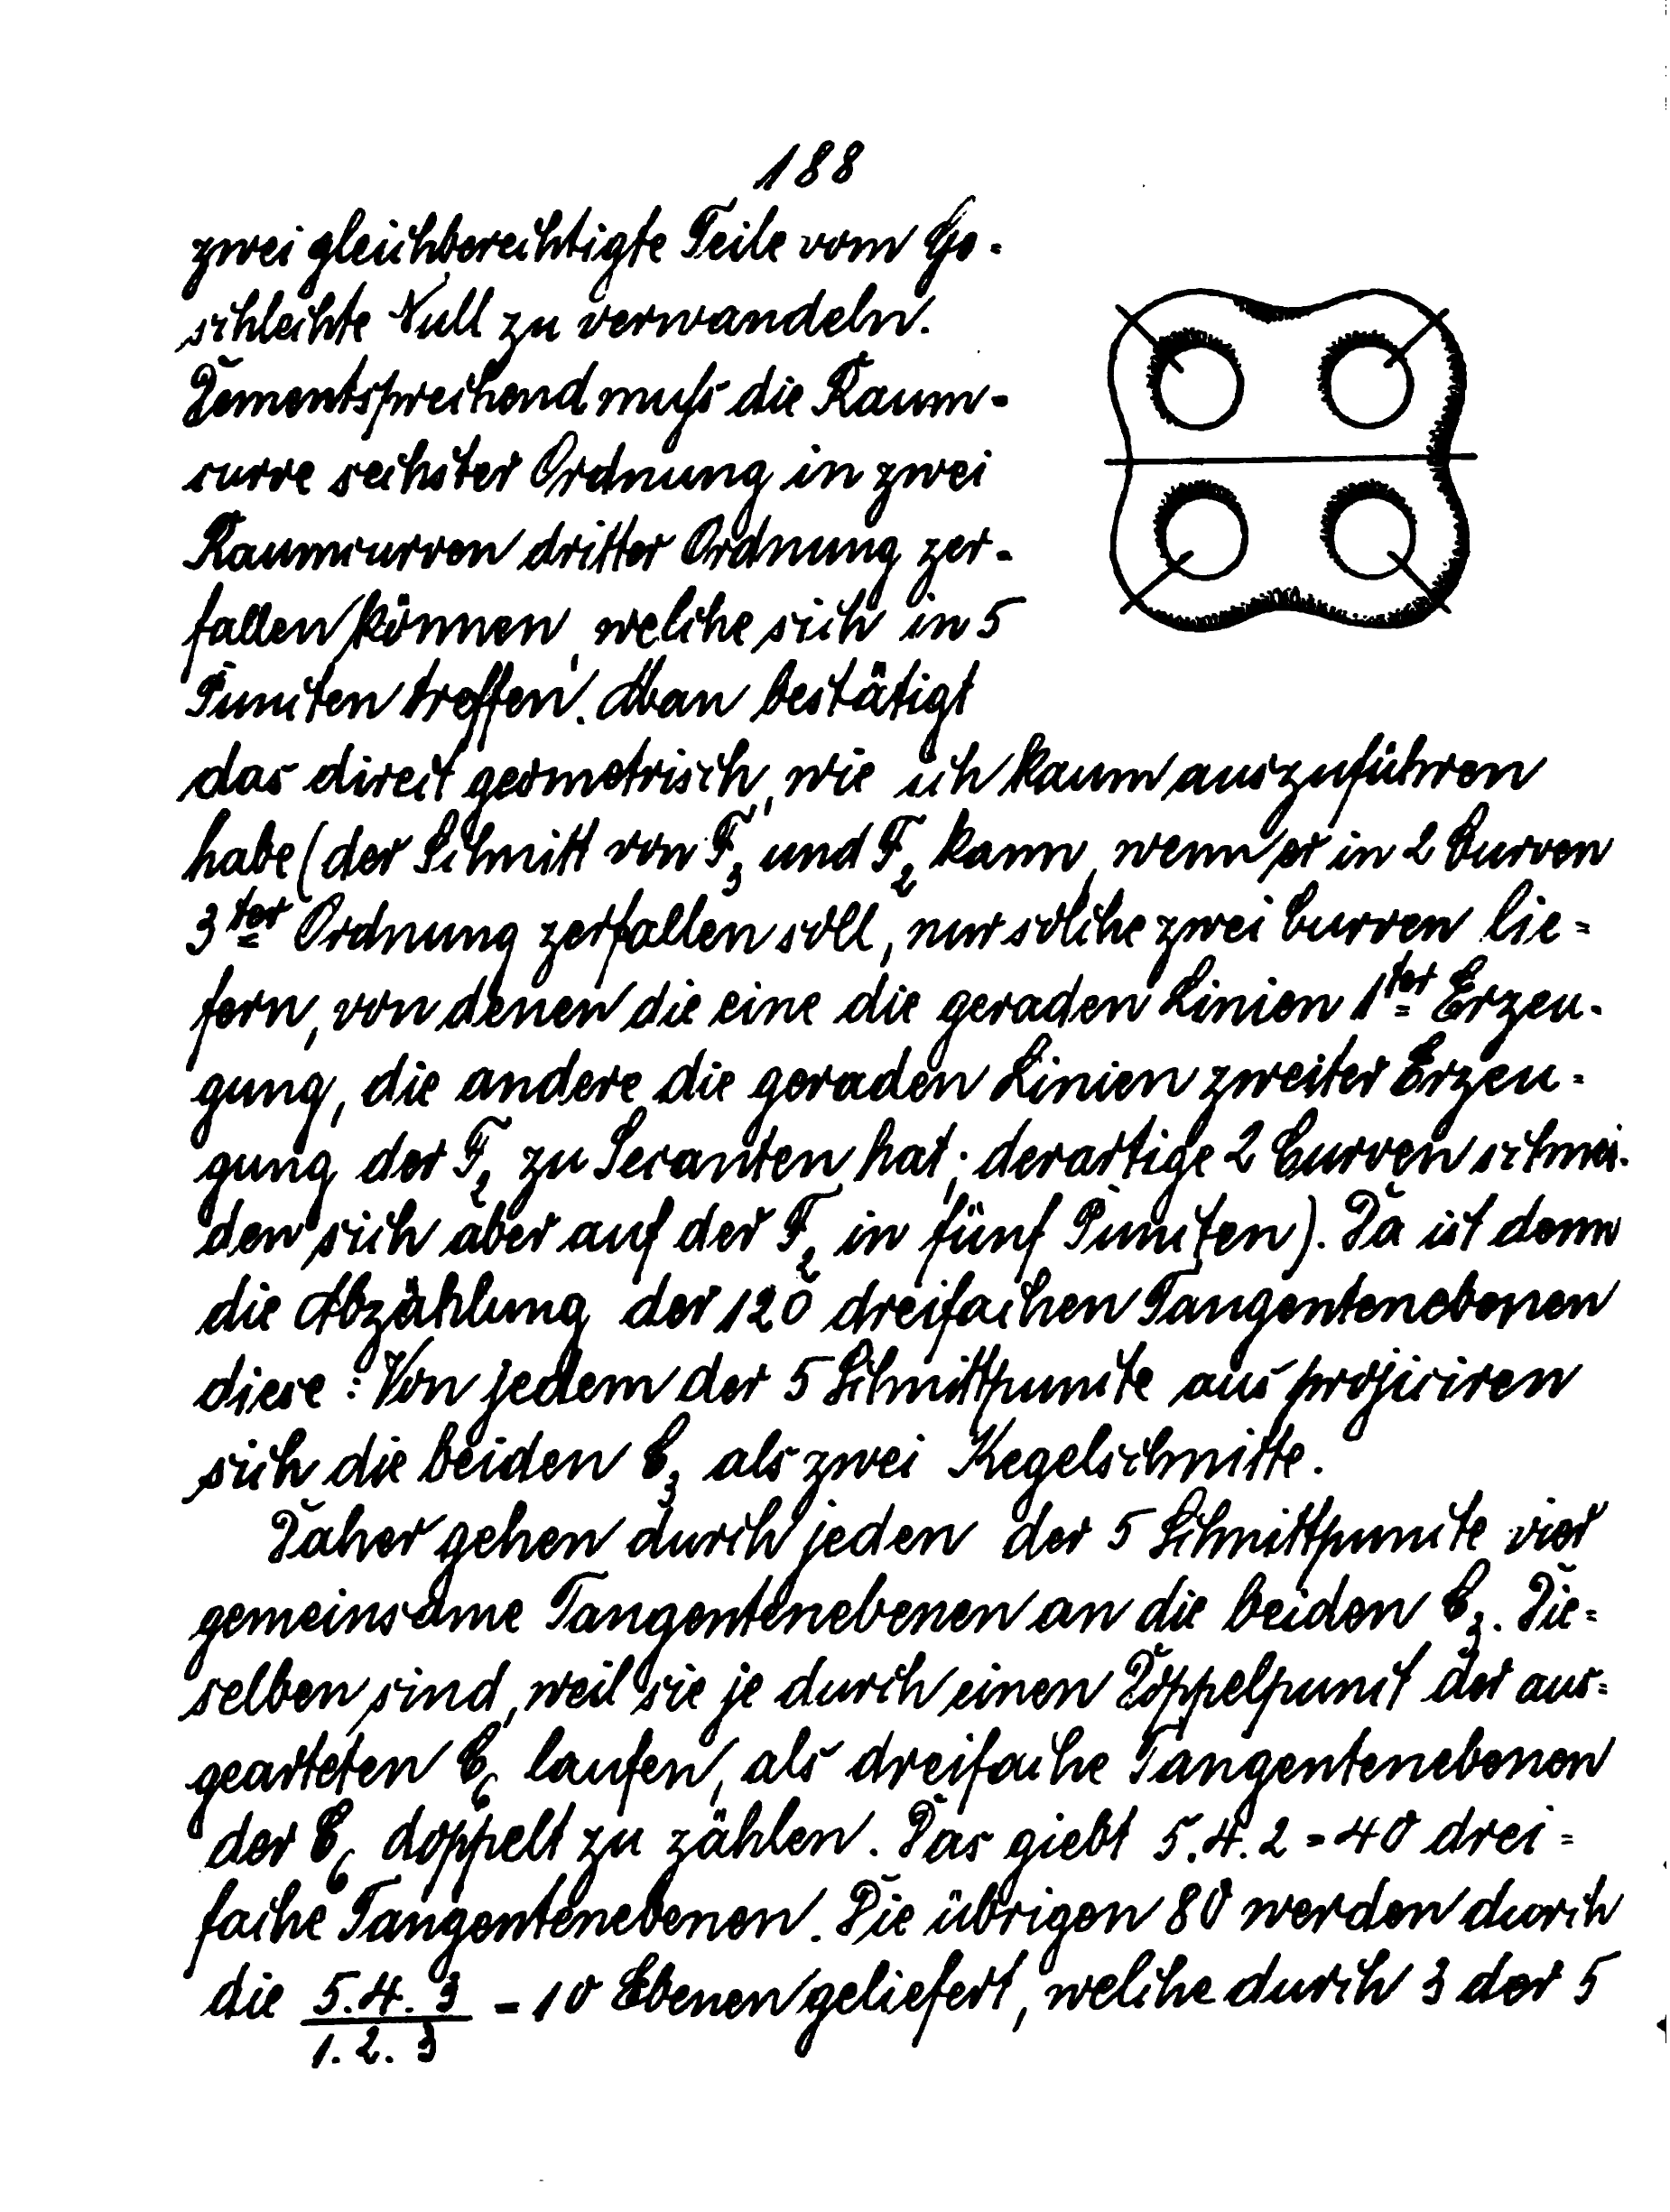 188
zwei gleichberechtigte Teile vom Ge-
schlechte Null zu verwandeln.
Dementsprechend muß die Raum-
curve sechster Ordnung in zwei
Raumcurven dritter Ordnung zer-
fallen können, welche sich in 5
Puncten treffen. Man bestätigt
das direct geometrisch, wie ich kaum auszuführen
habe (der Schnitt von F₃ und F₂ kann, wenn er in 2 Curven
3ter Ordnung zerfallen soll, nur solche zwei Curven lie=
fern, von denen die eine die geraden Linien 1ter Erzeu-
gung, die andere die geraden Linien zweiter Erzeu=
gung der F₂ zu Secanten hat; derartige 2 Curven schnei-
den sich aber auf der F₂ in fünf Puncten). Da ist denn
die Abzählung der 120 dreifachen Tangentenebenen
diese: Von jedem der 5 Schnittpuncte aus projiciren
sich die beiden C₃ als zwei Kegelschnitte.
Daher gehen durch jeden der 5 Schnittpuncte vier
gemeinsame Tangentenebenen an die beiden C₃. Die=
selben sind, weil sie je durch einen Doppelpunct der aus=
gearteten C₆ laufen, als dreifache Tangentenebenen
der C₆ doppelt zu zählen. Das giebt 5.4.2=40 drei=
fache Tangentenebenen. Die übrigen 80 werden durch
die 5.4.3/1.2.3 = 10 Ebenen geliefert, welche durch 3 der 5